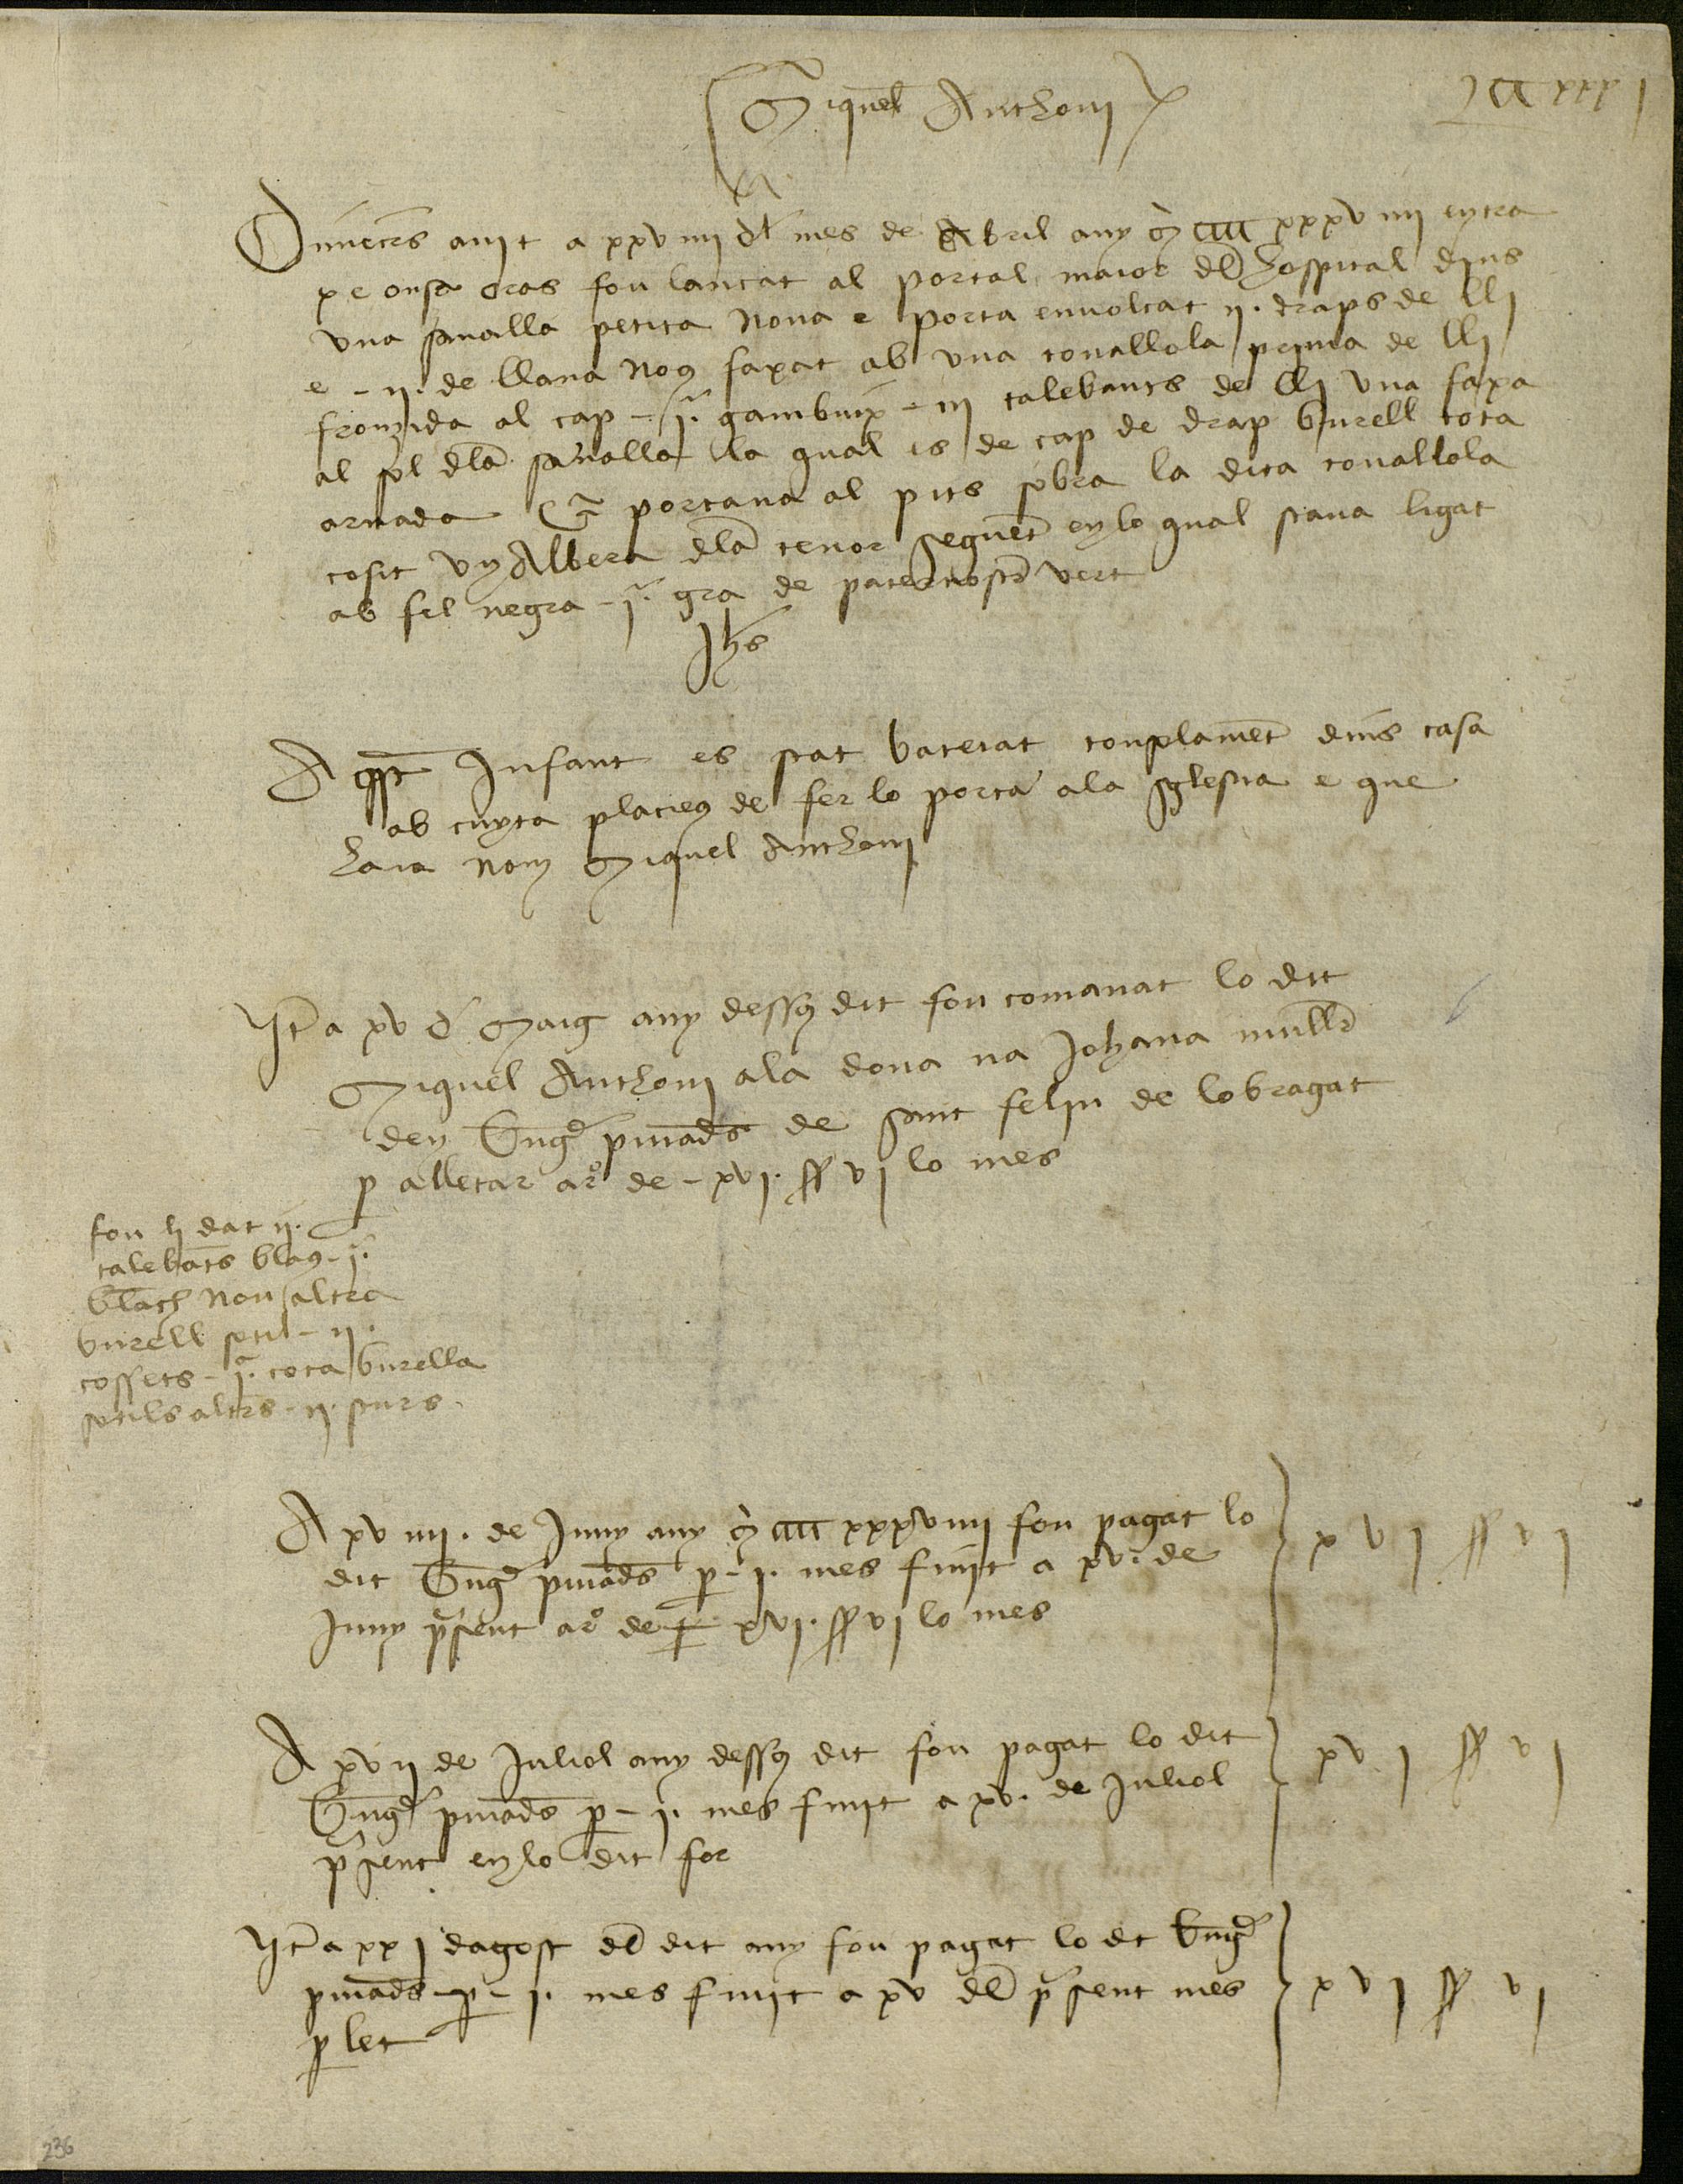 Miquel Anthoni
Dimecres a nit a xxviiii dl mes de Abril any Mccccxxxviiii entra
xe onse ores fou lançat al portal maior del hospital dins
vna sanalla petita noua e porta enuolcat ii. draps de lli
e - ii. de llana nou faxat ab vna touallola prima de lli
fronzida al cap - i. gambuix - iii talebants de lli vna faxa
al sol dla sanalla la qual es de cap de drap burell tota
arnada portaua al pits sobra la dita touallola
cosit vn Albera dla tenor seguent en lo qual staua ligat
ab fil negra - i. gra de paternostre vert
Jhs
Aqst Infant es stat bateiat conplament dins casa
ab cuyta placieus de fer lo portar ala sglesia e que
haia nom Miquel Anthoni
Itm a xv d Maig any dessus dit fou comanat lo dit
Miquel Anthoni ala dona na Johana muller
den de sant feliu de lobragat
p alletar a ro de - xvi. ss vi lo mes
fou li dat ii.
talebats blaus - i.
blach nou altra
burell sotil - ii.
cossets - i. cota burella
sotils altrs - ii.
A xviiii. de Juny any Mccccxxxviiii fou pagat lo
dit p - i. mes finit a xv. de
Juny psent a ro de xvi. ss vi lo mes
xvi ss vi
A xvii de Juliol any dessus dit fou pagat lo dit
p - i. mes finit a xv. de Juliol
psent en lo dit for
xvi ss vi
Itm a xxi dagost del dit any fou pagat lo dt
p - i. mes finit a xv del psent mes
p let
xvi ss vi
236